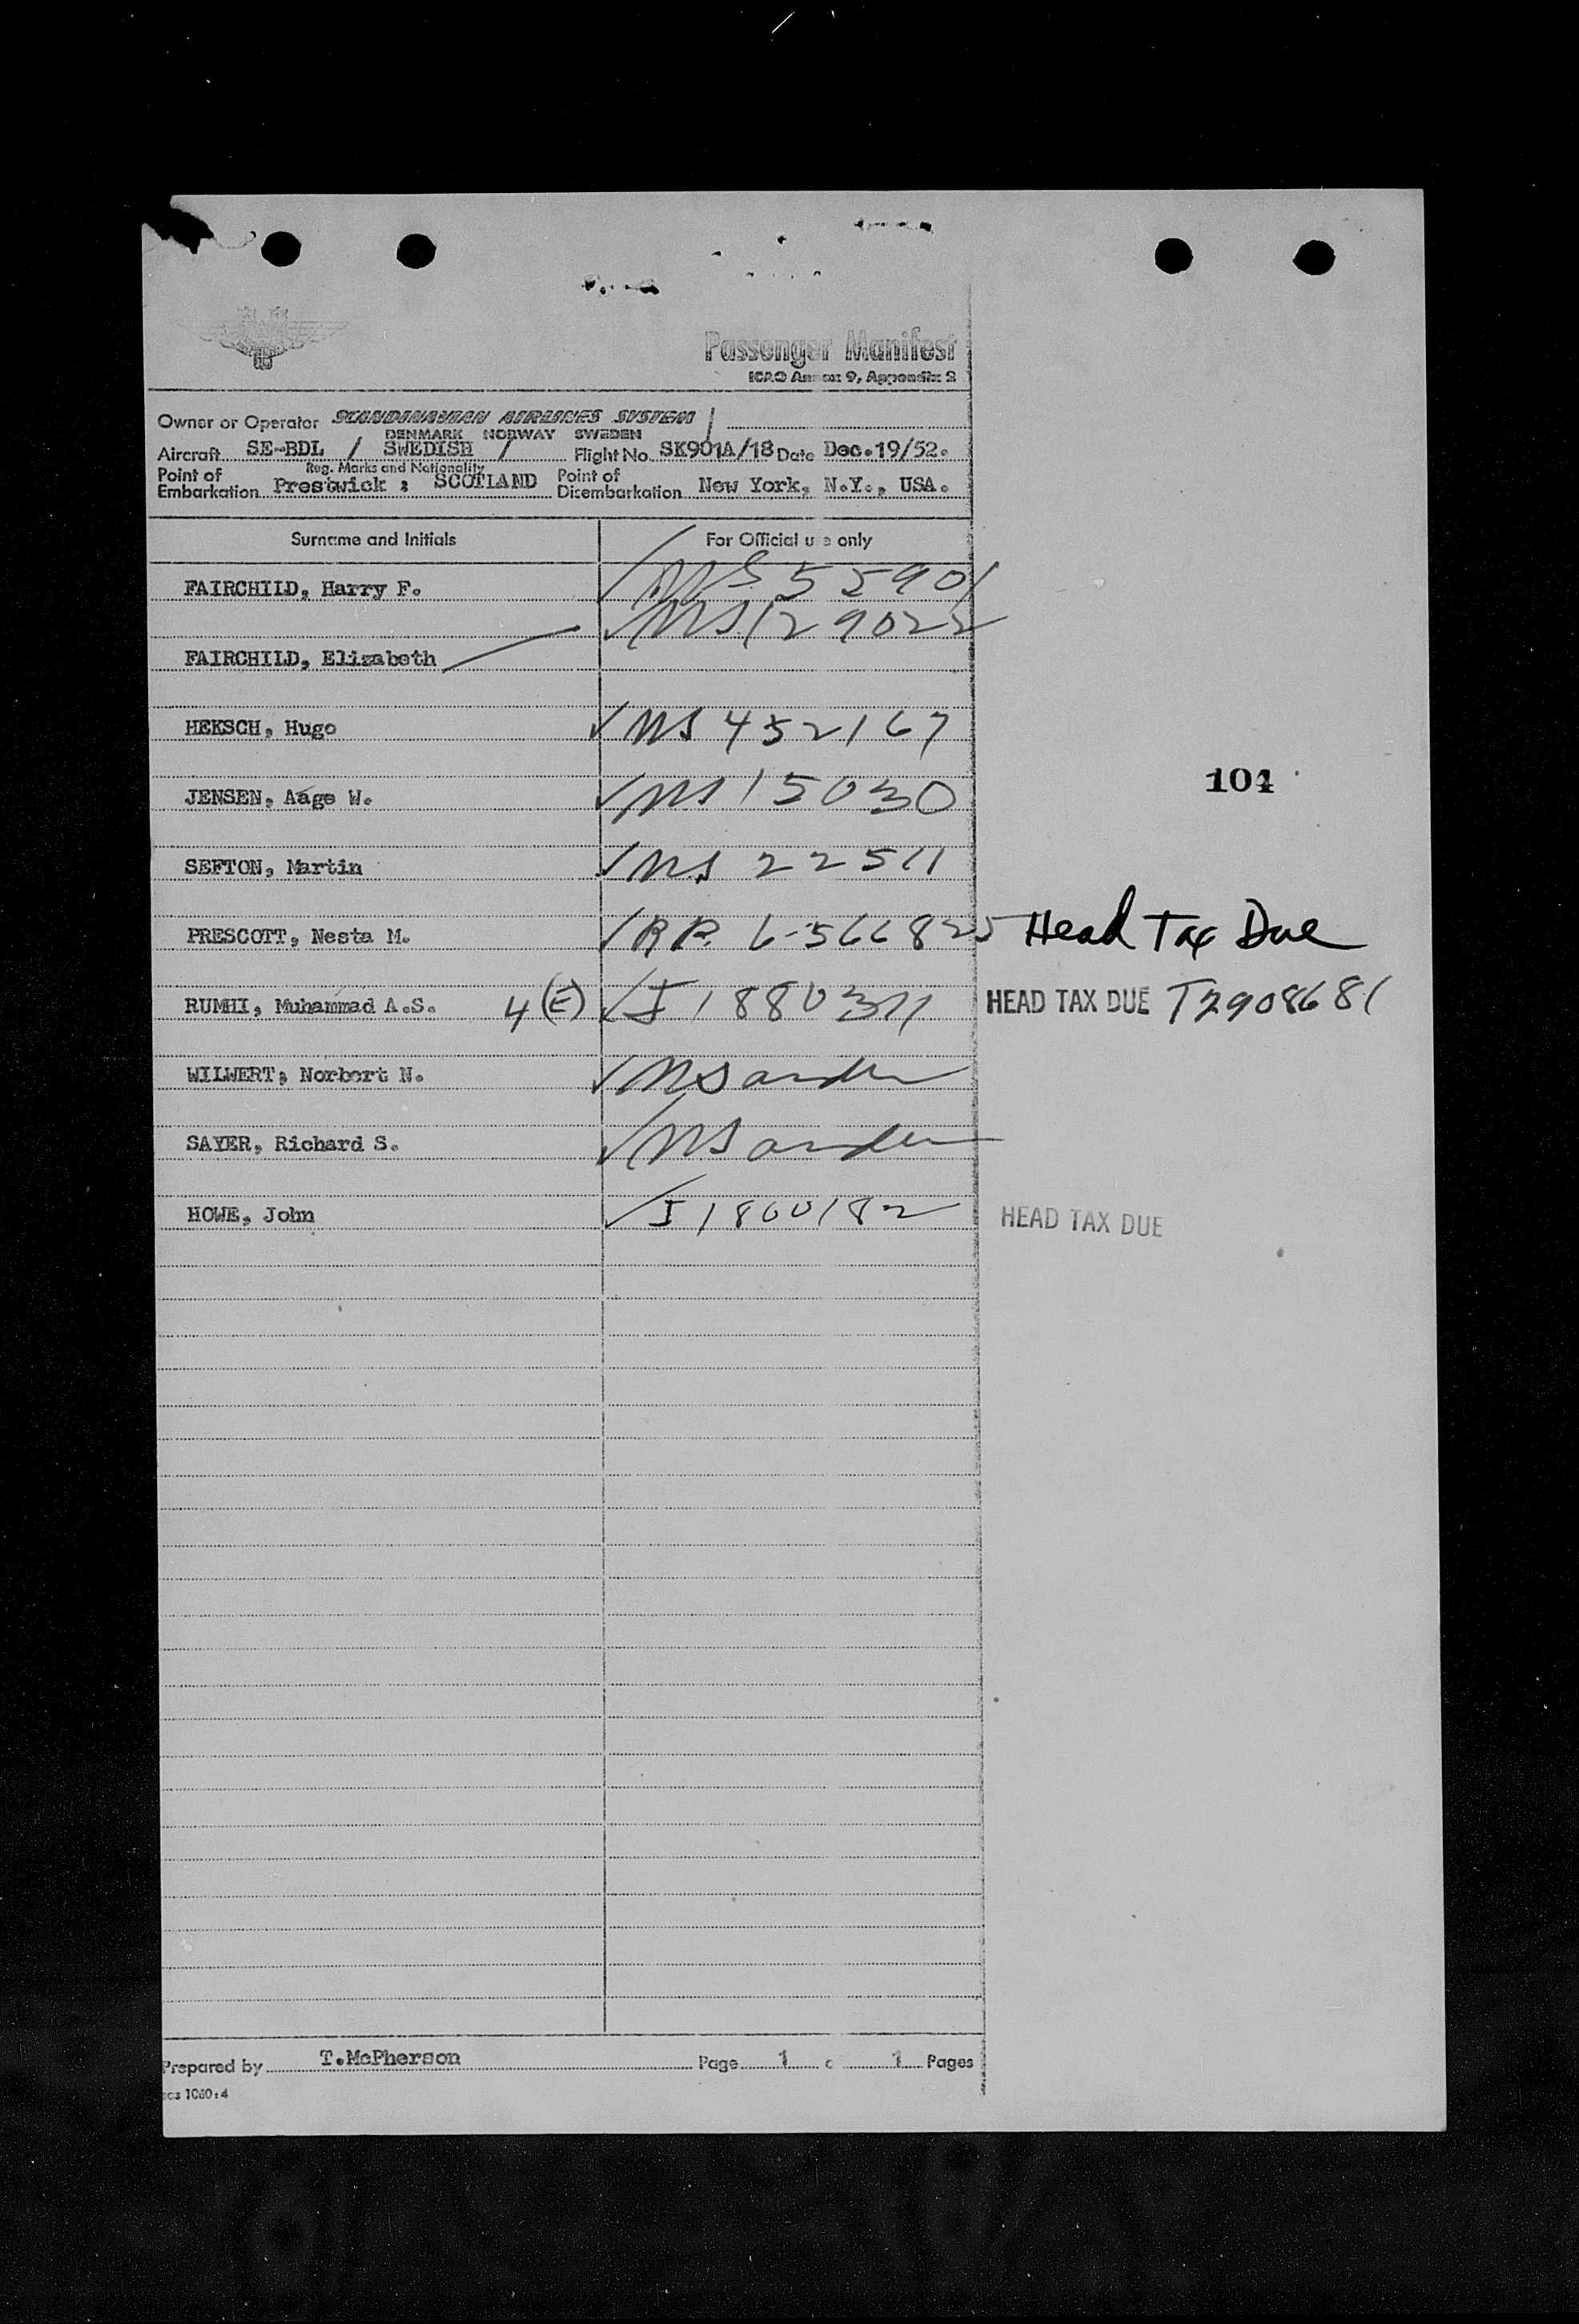 Passenger Manifest
ICAO Annex 9, Appendix 2
Owner or Operator SCANDINAVIAN AIRLINES SYSTEM /
DENMARK NORWAY SWEDEN
Aircraft SE-BDL / SWEDISH / Flight No. SK901A/18 Date Dec.19/52.
Reg. Marks and Nationality
Point of Embarkation Prestwick : SCOTLAND Point of Disembarkation New York, N.Y., USA.
Surname and Initials For Official use only
FAIRCHILD, Harry F. ✓ NS 55901
✓ NS 129022
FAIRCHILD, Elizabeth
HEKSCH, Hugo ✓ NS 452167
104
JENSEN, Aage W. ✓ NS 15030
SEFTON, Martin ✓ NS 22511
PRESCOTT, Nesta M. ✓ RP. 6-566825 Head Tax Due
RUMHI, Muhammad A.S. 4 (E) ✓ I 1880311 HEAD TAX DUE T2908681
WILWERT, Norbert N. ✓ NS
SAYER, Richard S. ✓ NS
HOWE, John ✓ I 1860182 HEAD TAX DUE
Prepared by T.McPherson Page 1 o 1 Pages
1060:4